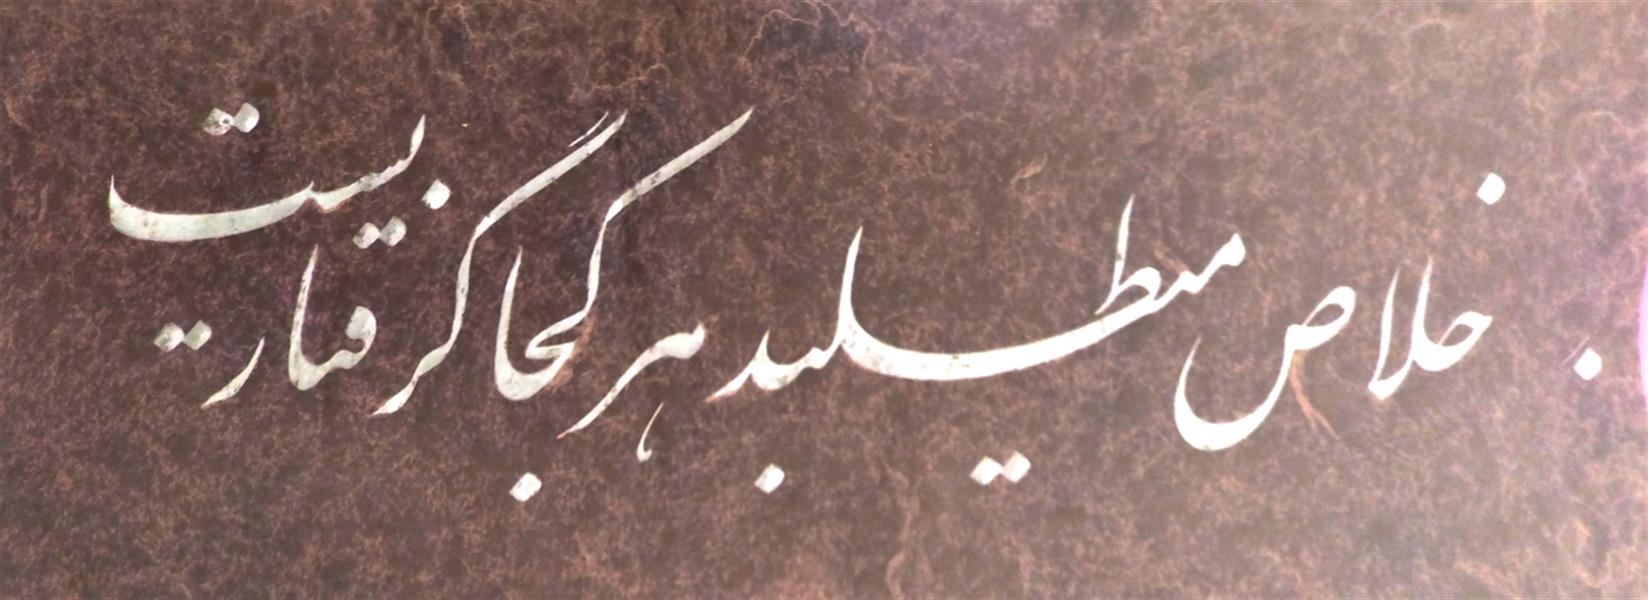 خلاص میطلبد هر کجا گرفتاریست